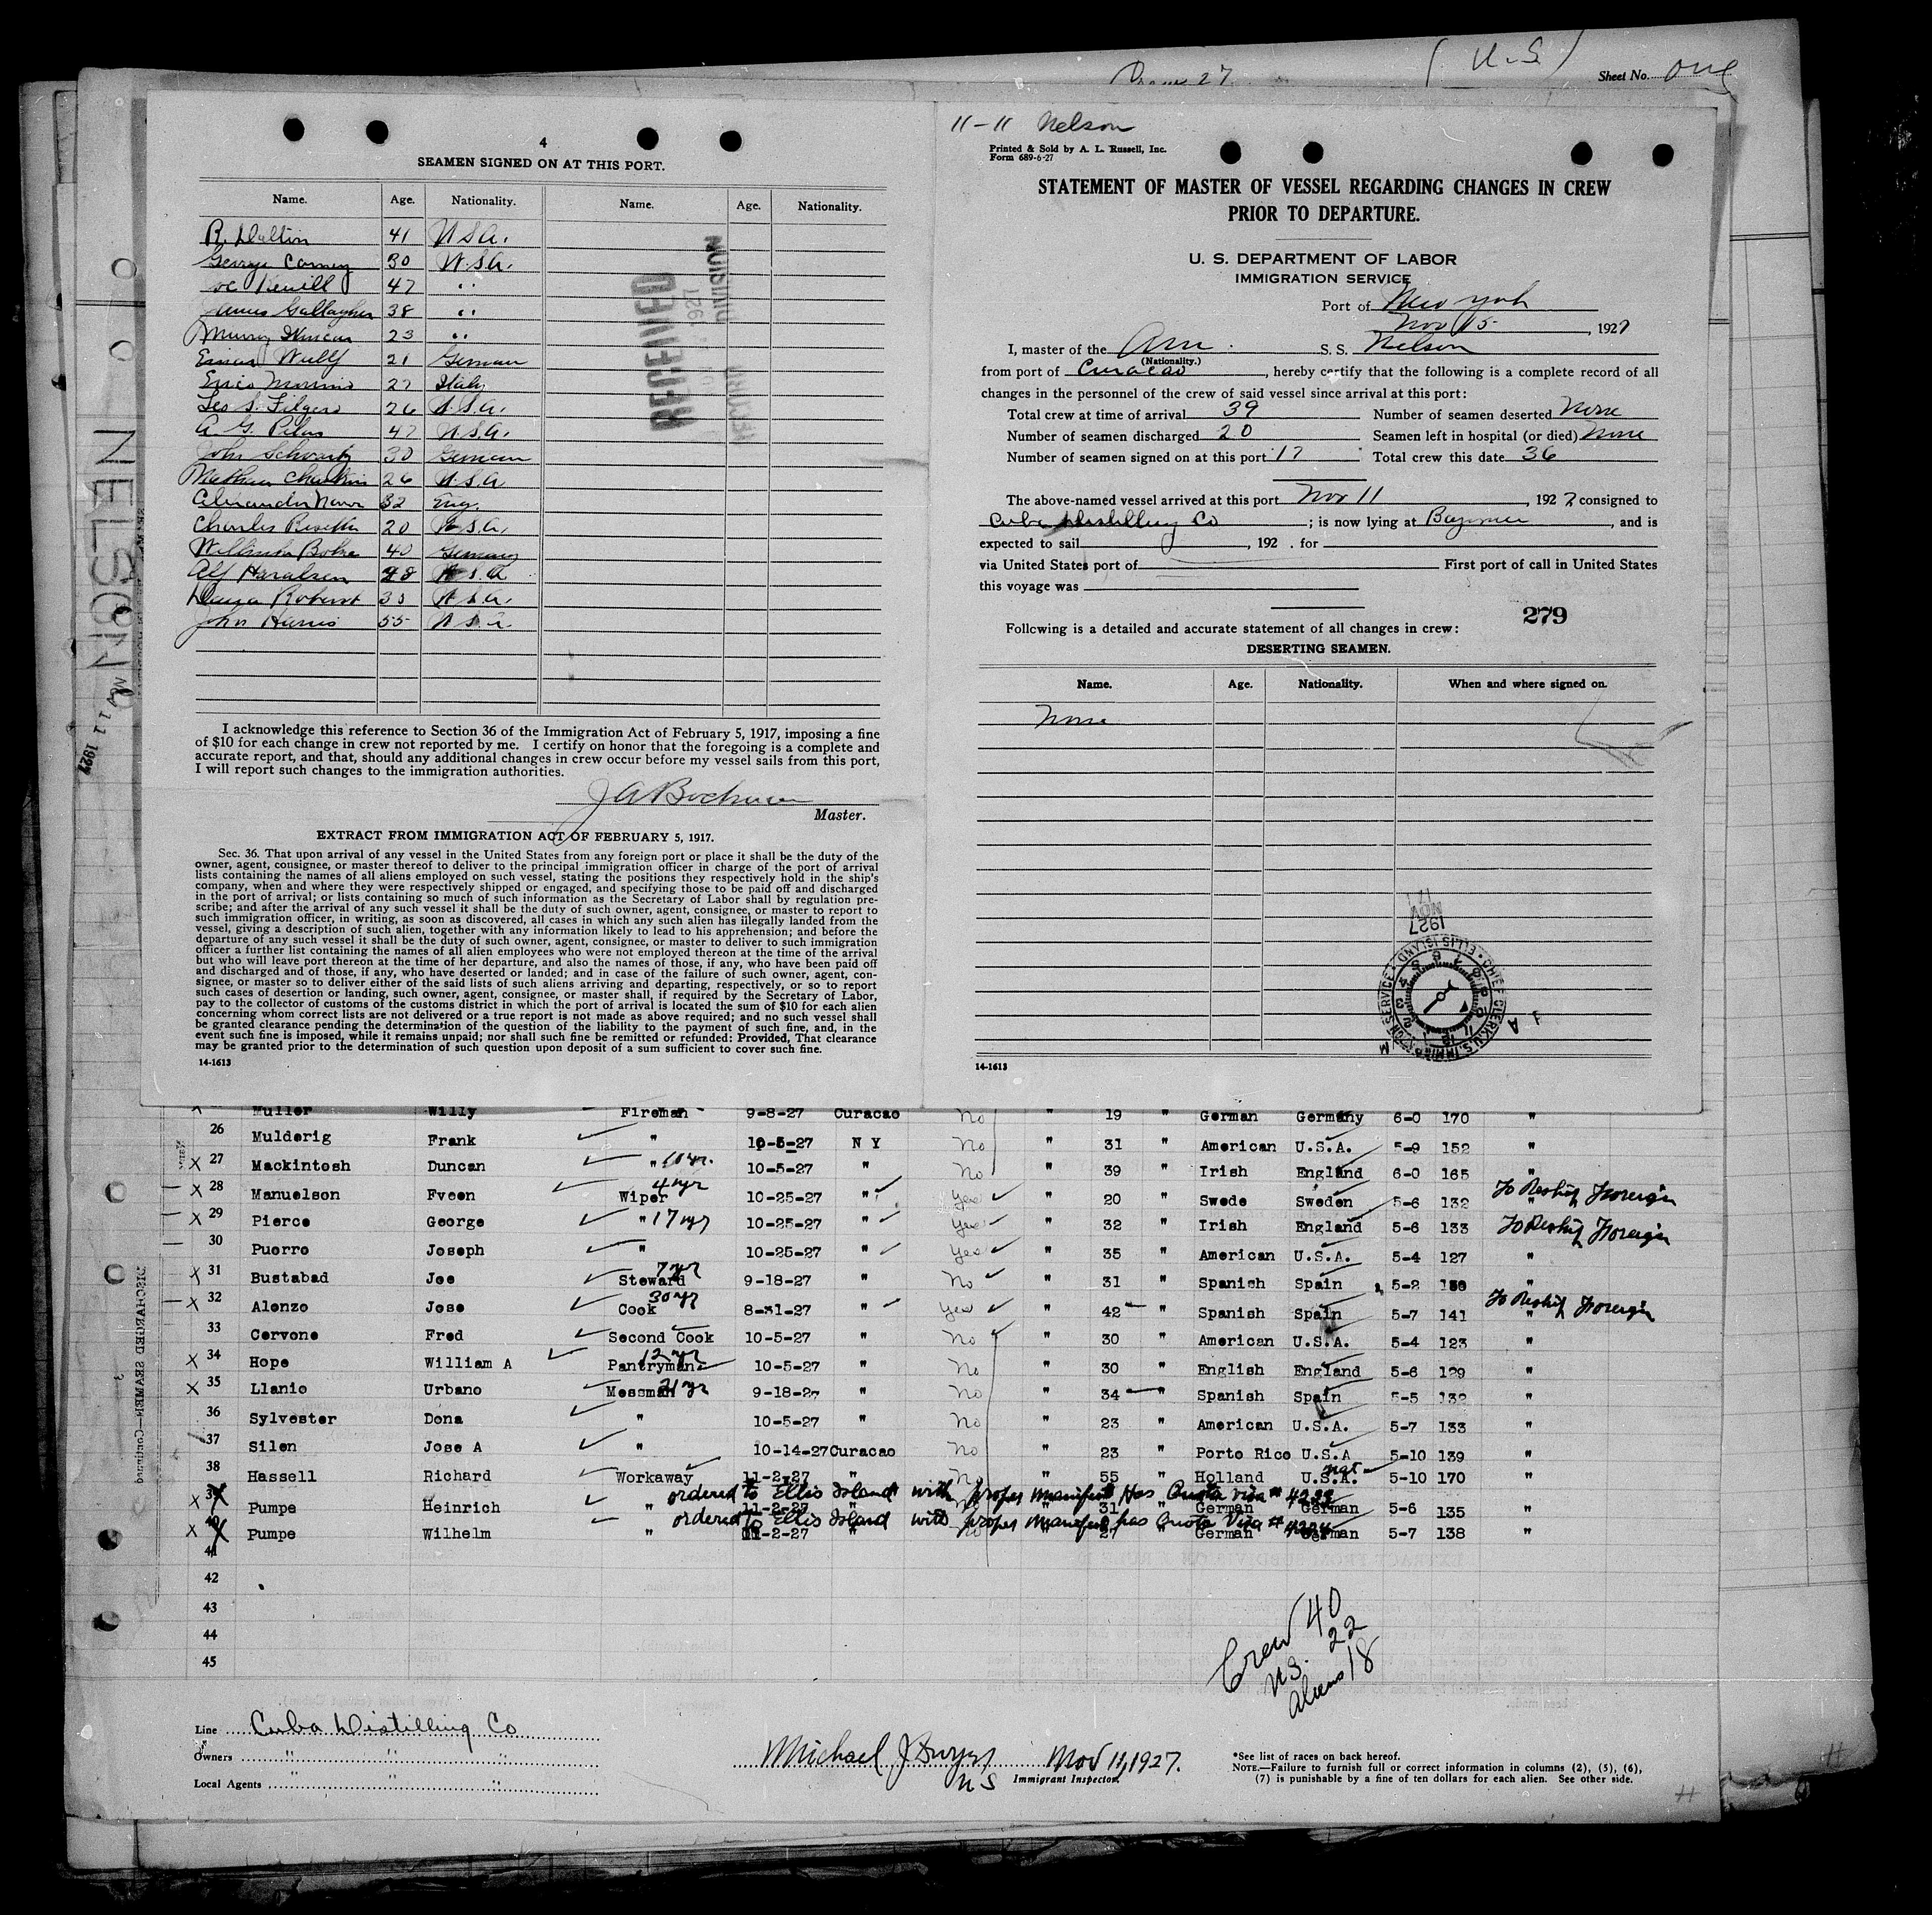 (U.S.)
Sheet No. One
4
SEAMEN SIGNED ON AT THIS PORT.
Name. Age. Nationality. Name. Age. Nationality.
R. Dalton 41 U.S.A.
George Carney 30 U.S.A.
47 "
James Gallagher 38 "
Murry Duncan 23 "
Wulff 21 German
27 Italy
Leo S. 26 U.S.A.
A. G. 47 U.S.A.
John Schwartz 30 German
26 U.S.A
32 Eng.
Charles 20 U.S.A.
40 Germany
Alf Haralsen 48 U.S.A
30 U.S.A.
John Harris 55 U.S.A.
RECEIVED
1927
RECORD DIVISION
I acknowledge this reference to Section 36 of the Immigration Act of February 5, 1917, imposing a fine
of $10 for each change in crew not reported by me. I certify on honor that the foregoing is a complete and
accurate report, and that, should any additional changes in crew occur before my vessel sails from this port,
I will report such changes to the immigration authorities.
Master.
EXTRACT FROM IMMIGRATION ACT OF FEBRUARY 5, 1917.
Sec. 36. That upon arrival of any vessel in the United States from any foreign port or place it shall be the duty of the
owner, agent, consignee, or master thereof to deliver to the principal immigration officer in charge of the port of arrival
lists containing the names of all aliens employed on such vessel, stating the positions they respectively hold in the ship's
company, when and where they were respectively shipped or engaged, and specifying those to be paid off and discharged
in the port of arrival; or lists containing so much of such information as the Secretary of Labor shall by regulation pre-
scribe; and after the arrival of any such vessel it shall be the duty of such owner, agent, consignee, or master to report to
such immigration officer, in writing, as soon as discovered, all cases in which any such alien has illegally landed from the
vessel, giving a description of such alien, together with any information likely to lead to his apprehension; and before the
departure of any such vessel it shall be the duty of such owner, agent, consignee, or master to deliver to such immigration
officer a further list containing the names of all alien employees who were not employed thereon at the time of the arrival
but who will leave port thereon at the time of her departure, and also the names of those, if any, who have been paid off
and discharged and of those, if any, who have deserted or landed; and in case of the failure of such owner, agent, con-
signee, or master so to deliver either of the said lists of such aliens arriving and departing, respectively, or so to report
such cases of desertion or landing, such owner, agent, consignee, or master shall, if required by the Secretary of Labor,
pay to the collector of customs of the customs district in which the port of arrival is located the sum of $10 for each alien
concerning whom correct lists are not delivered or a true report is not made as above required; and no such vessel shall
be granted clearance pending the determination of the question of the liability to the payment of such fine, and, in the
event such fine is imposed, while it remains unpaid; nor shall such fine be remitted or refunded: Provided, That clearance
may be granted prior to the determination of such question upon deposit of a sum sufficient to cover such fine.
14-1613
11-11 Nelson
Printed & Sold by A. L. Russell, Inc.
Form 689-6-27
STATEMENT OF MASTER OF VESSEL REGARDING CHANGES IN CREW
PRIOR TO DEPARTURE.
U. S. DEPARTMENT OF LABOR
IMMIGRATION SERVICE
Port of New York
Nov 15, 1927
I, master of the Am. S. S. Nelson
(Nationality.)
from port of Curacao, hereby certify that the following is a complete record of all
changes in the personnel of the crew of said vessel since arrival at this port:
Total crew at time of arrival 39 Number of seamen deserted None
Number of seamen discharged 20 Seamen left in hospital (or died) None
Number of seamen signed on at this port 17 Total crew this date 36
The above-named vessel arrived at this port Nov 11, 1927 consigned to
Cuba Distilling Co; is now lying at Bayonne, and is
expected to sail, 192 . for
via United States port of First port of call in United States
this voyage was
279
Following is a detailed and accurate statement of all changes in crew:
DESERTING SEAMEN.
Name. Age. Nationality. When and where signed on.
None
1927
NOV
CHIEF CLERK U.S. IMMIGRATION SERVICE ELLIS ISLAND
14-1613
NELSON
NOV 11 1927
DISCHARGED SEAMEN—Continued
Muller Willy Fireman 9-8-27 Curacao No " 19 " German Germany 6-0 170 "
26 Mulderig Frank " 10-5-27 N Y No " 31 " American U.S.A. 5-9 152 "
X 27 Mackintosh Duncan " 10 yr. 10-5-27 " No " 39 " Irish England 6-0 165 "
X 28 Manuelson Fveen Wiper 4 yr 10-25-27 " Yes " 20 " Swede Sweden 5-6 132 " To Reship Foreign
X 29 Pierce George " 17 yr 10-25-27 " Yes " 32 " Irish England 5-6 133 To Reship Foreign
30 Puorro Joseph " 10-25-27 " Yes " 35 " American U.S.A. 5-4 127 "
X 31 Bustabad Joe Steward 7 yr 9-18-27 " No " 31 " Spanish Spain 5-2 "
X 32 Alonzo Jose Cook 30 yr 8-31-27 " Yes " 42 " Spanish Spain 5-7 141 " To Reship Foreign
33 Cervone Fred Second Cook 10-5-27 " No " 30 " American U.S.A. 5-4 123
X 34 Hope William A Pantryman 12 yr 10-5-27 " No " 30 " English England 5-6 129 "
X 35 Llanio Urbano Messman 21 yr 9-18-27 " No " 34 " Spanish Spain 5-5 132 "
36 Sylvester Dona " 10-5-27 " No " 23 " American U.S.A. 5-7 133 "
37 Silen Jose A " 10-14-27 Curacao No " 23 " Porto Rico U.S.A 5-10 139 "
38 Hassell Richard Workaway 11-2-27 " No " 55 " Holland U.S.A. nat 5-10 170 "
ordered to Ellis Island with proper manifest Has Quota Visa # 4223
X 39 Pumpe Heinrich " 11-2-27 " " 31 " German German 5-6 135 "
ordered to Ellis Island with proper manifest has Quota Visa # 4224
X 40 Pumpe Wilhelm " 11-2-27 " no " 27 " German German 5-7 138 "
41
42
43
44
45
Crew 40
U.S. 22
Aliens 18
Line Cuba Distilling Co
Owners " " "
Local Agents " " "
Michael J Nov 11, 1927.
Immigrant Inspector.
*See list of races on back hereof.
NOTE.—Failure to furnish full or correct information in columns (2), (5), (6),
(7) is punishable by a fine of ten dollars for each alien. See other side.